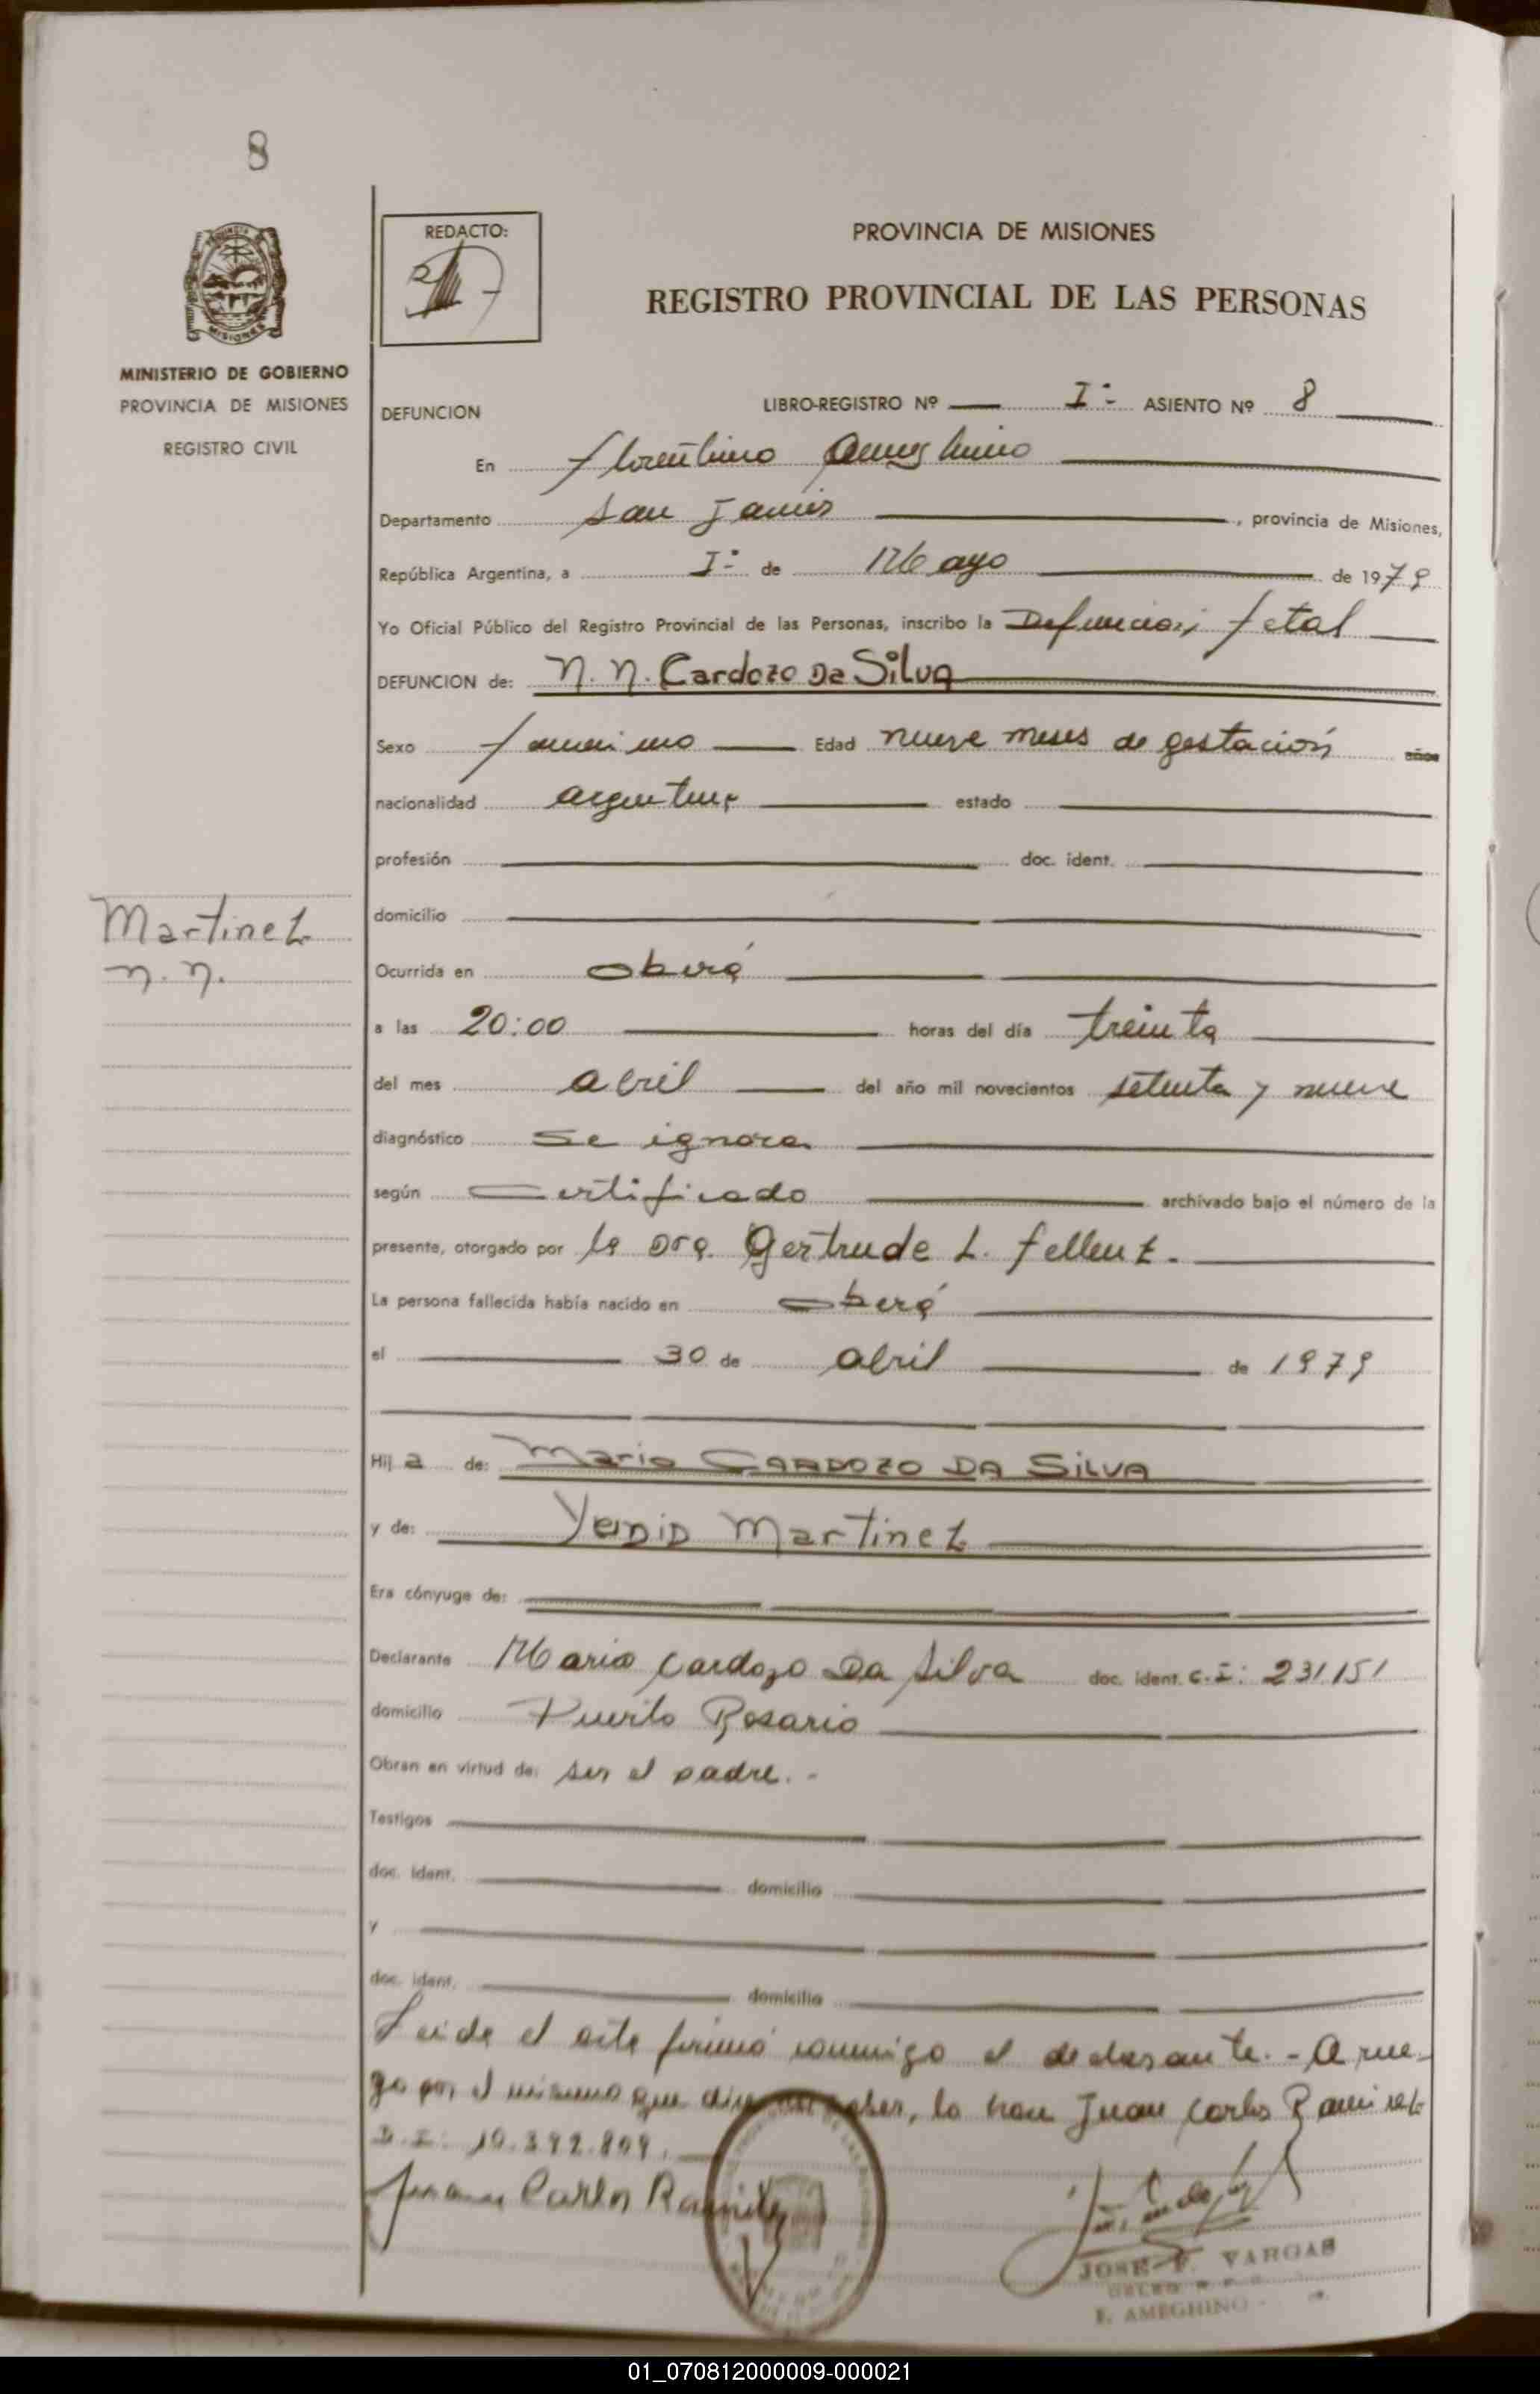 8
REDACTO:
MINISTERIO DE GOBIERNO
PROVINCIA DE MISIONES
REGISTRO CIVIL
PROVINCIA DE MISIONES
REGISTRO PROVINCIAL DE LAS PERSONAS
DEFUNCION LIBRO-REGISTRO Nº I.- ASIENTO Nº 8
En florentino Ameghino
Departamento San Javier, provincia de Misiones,
República Argentina, a I.- de Mayo de 1979
Yo Oficial Público del Registro Provincial de las Personas, inscribo la Defunción fetal
DEFUNCION de: N.N. Cardozo Da Silva
Sexo femenino Edad nueve meses de gestación años
nacionalidad argentina estado
profesión doc. ident.
Martinez
N.N.
domicilio
Ocurrida en Oberá
a las 20:00 horas del día treinta
del mes abril del año mil novecientos setenta y nueve
diagnóstico se ignora
según Certificado archivado bajo el número de la
presente, otorgado por la Dra. Gertrude L. Fellenz.-
La persona fallecida había nacido en Oberá
el 30 de Abril de 1979
Hija de: Mario CARDOZO DA SILVA
y de: Martinez
Era cónyuge de:
Declarante Mario Cardozo Da Silva doc. ident. C.I: 231.151
domicilio Puerto Rosario
Obran en virtud de: ser el padre.-
Testigos
doc. ident. domicilio
y
doc. ident. domicilio
Leida el acta firmó conmigo el declarante.- A rue-
go por el mismo que dice saber, lo hace Juan Carlos Ramirez
Juan Carlos Ramirez
JOSE F. VARGAS
F. AMEGHINO -
01_070812000009-000021